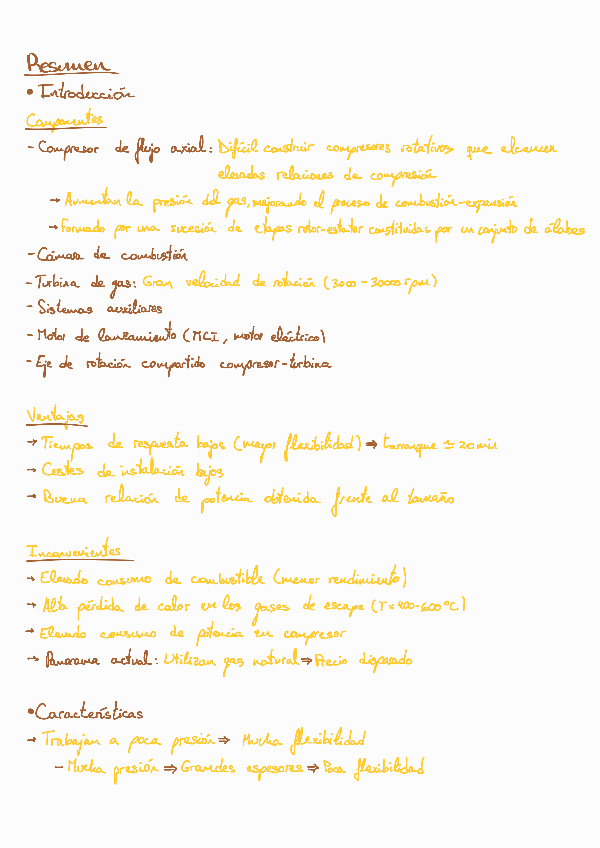 Resumen
• Introducción
Componentes
- Compresor de flujo axial: Difícil construir compresores rotativos que alcancen
elevadas relaciones de compresión
→ Aumentan la presión del gas, mejorando el proceso de combustión-expansión
→ Formado por una sucesión de etapas rotor-estator constituidas por un conjunto de álabes
- Cámara de combustión
- Turbina de gas: Gran velocidad de rotación (3000 - 30000 rpm)
- Sistemas auxiliares
- Motor de lanzamiento (MCI, motor eléctrico)
- Eje de rotación compartido compresor-turbina
Ventajas
→ Tiempos de respuesta bajos (mayor flexibilidad) ⇒ tarranque ≃ 20 min
→ Costes de instalación bajos
→ Buena relación de potencia obtenida frente al tamaño
Inconvenientes
→ Elevado consumo de combustible (menor rendimiento)
→ Alta pérdida de calor en los gases de escape (T = 400-600 °C)
→ Elevado consumo de potencia en compresor
→ Panorama actual: Utilizan gas natural ⇒ Precio disparado
• Características
→ Trabajan a poca presión ⇒ Mucha flexibilidad
- Mucha presión ⇒ Grandes espesores ⇒ Poca flexibilidad